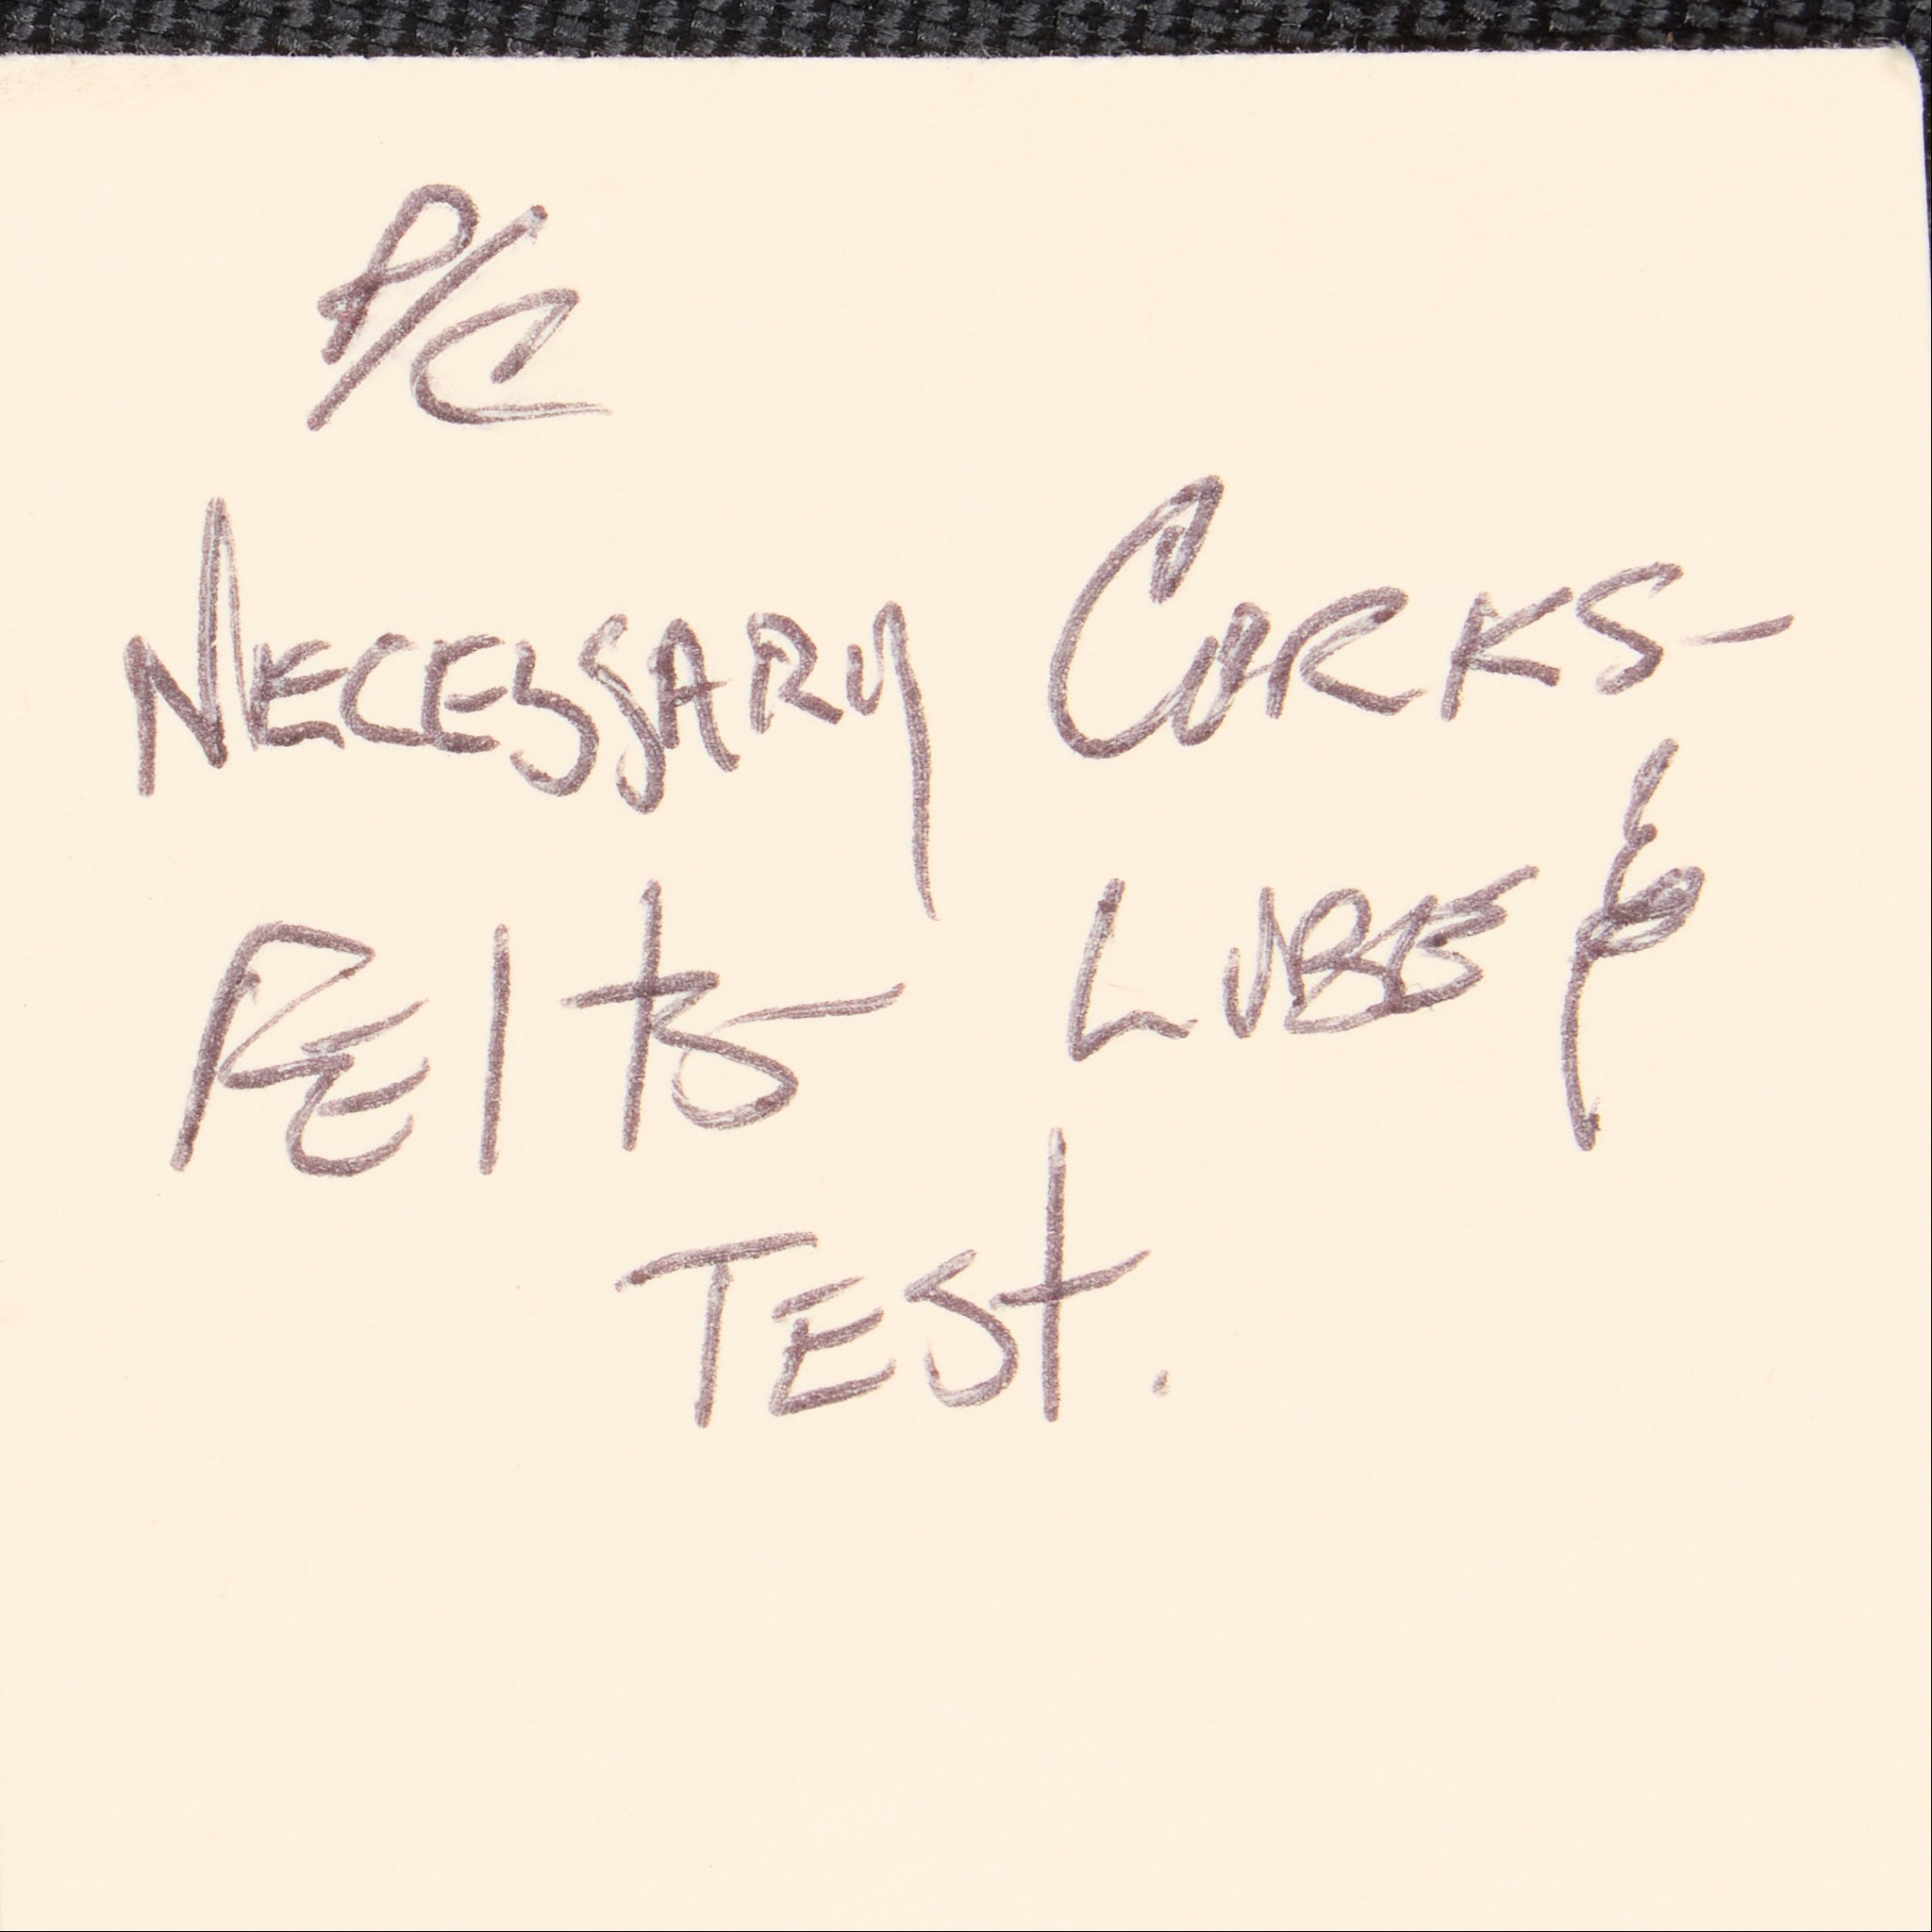 P/C
NECESSARY CORKS-
FElts- LUBE &
TESt.